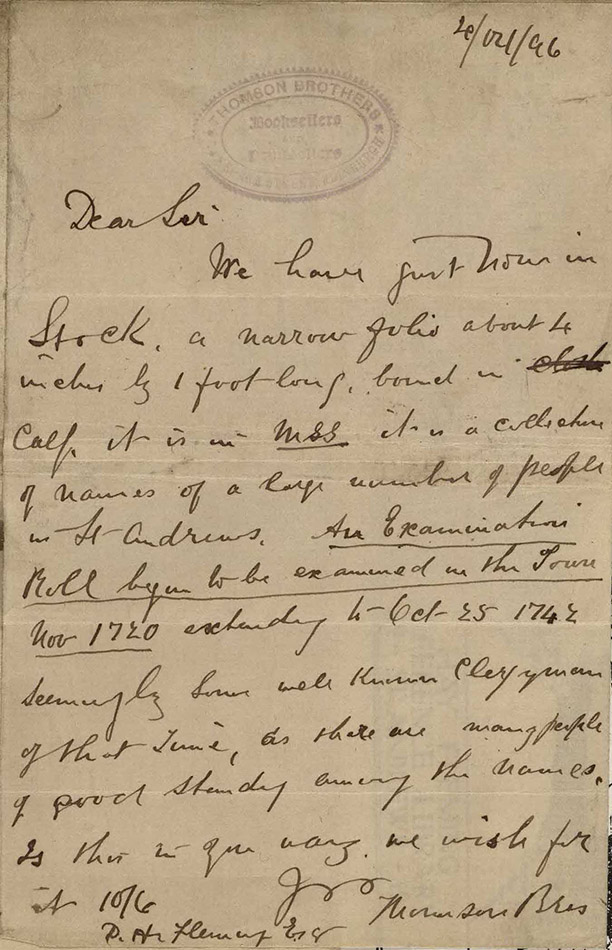 4/Oct/96
THOMSON BROTHERS
Booksellers
EDINBURGH
Dear Sir
We have just now in
Stock, a narrow folio about 4
inches by 1 foot long, bound in cloth
Calf, it is in MSS it is a collection
of names of a large number of people
in St Andrews. An Examination
Roll begun to be examined in the Town
Nov 1720 extending to Oct 25 1742
seemingly some well known Clergyman
of that Time, as there are many people
of good standing among the names.
Is this in your way. we wish for
it 10/6
Thomson Bros
D. Hay Fleming Esqr